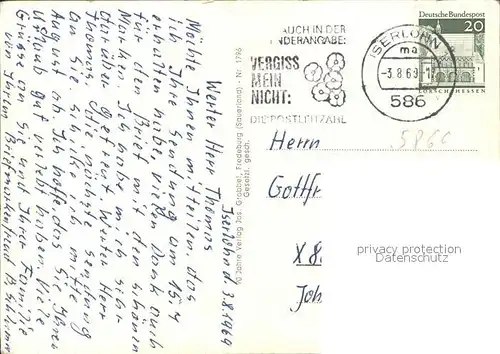 Iserlohn d. 3.8.1969
Werter Herr Thomas
Möchte Ihnen mitteilen, das
ich Ihre Sendung am 15.4
erhalten habe, vielen Dank auch
für den Brief mit den schönen
Marken. Ich habe mich sehr
darüber gefreut. Werter Herr
Thomas die nächste Sendung
an Sie schicke ich mitte
August ab. Ich hoffe das Sie Ihren
Urlaub gut verlebt haben. Viele
Grüsse an Sie und Ihrer Familie
von Ihrem Briefmarkenfreund
10 Jahre Verlag Jos. Grobbel, Fredeburg (Sauerland) - Nr. 1796
Gesetzl. gesch.
AUCH IN DER
NDERANGABE:
VERGISS
MEIN
NICHT:
DIE POSTLEITZAHL
ISERLOHN
ma
-3.8.69-1
586
Deutsche Bundespost
20
LORSCH/HESSEN
5860
Herrn
Gottfr
X 8
Joh
privacy protection
Ansichtskartenversand